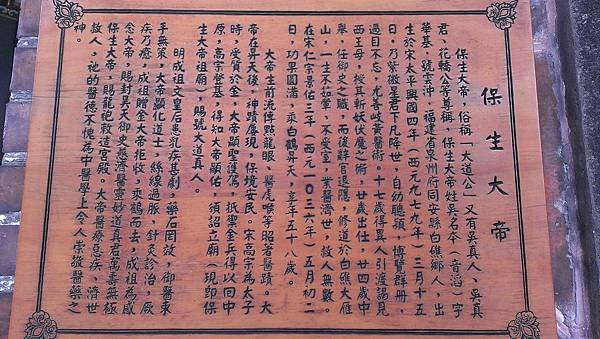 保生大帝
保生大帝，俗稱「大道公」又有吳真人、吳真
君、花轎公等尊稱，保生大帝姓吳名夲（音滔）字
華基，號雲沖，福建省泉州府同安縣白礁鄉人，出
生於宋太平興國四年（西元九七九年）三月十五
日，乃紫微星君下凡降世，自幼聰穎，博覽群冊，
過目不忘，尤善岐黃醫術。十七歲得異人引渡謁見
西王母，授其斬妖伏魔之術，廿歲出仕，廿四歲中
舉，任御史之職，而後辭官退隱，修道於白礁大雁
山，一生不茹葷、不受室，業醫濟世，救人無數。
於宋仁宗景佑三年（西元一０三六年）五月初二
日，功果圓滿，乘白鶴昇天，享年五十八歲。
大帝生前流傳點龍眼、醫虎喉等昭者醫蹟。大
帝在昇天後，神蹟屢現，保境安民。宋高宗為太子
時，受質於金，大帝顯聖護駕，抵禦金兵得以回中
原，高宗登基，得知大帝顯佑，須詔立廟（現即保
生大帝祖廟），賜號大道真人。
明成祖文皇后患乳疾甚劇，藥石罔效，御醫束
手無策，大帝顯化道士，絲線過脈，針灸診治，厥
疾乃癒，成祖贈金大帝拒收，乘鶴而去，成祖為感
念大帝，賜封昊天御史慈濟醫靈妙道真君萬壽無極
保生大帝，賜龍袍敕造宮殿。大帝醫療惡疾、濟世
救人，祂的醫德不愧為中醫學上令人崇敬醫藥之
神。